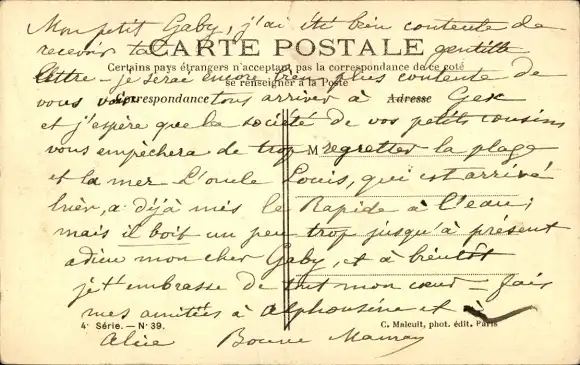 Mon petit Gaby, j'ai été bien contente de
recevoir ta gentille
CARTE POSTALE
Certains pays étrangers n'acceptant pas la correspondance de ce coté
se renseigner à la Poste
lettre - je serai encore très plus contente de
Correspondance
Adresse
vous voir tous arriver à Gex
et j'espère que la société de vos petits cousins
vous empêchera de trop regretter la plage
M
et la mer L'oncle Louis, qui est arrivé
hier, a déjà mis le Rapide à l'eau;
mais il boit un peu trop jusqu'à présent
adieu mon cher Gaby, et à bientôt
je t'embrasse de tout mon cœur - fais
mes amitiés à Alphonsine et à
4e Série. - N° 39.
C. Malcuit, phot. édit. Paris
Alice Bonne Maman